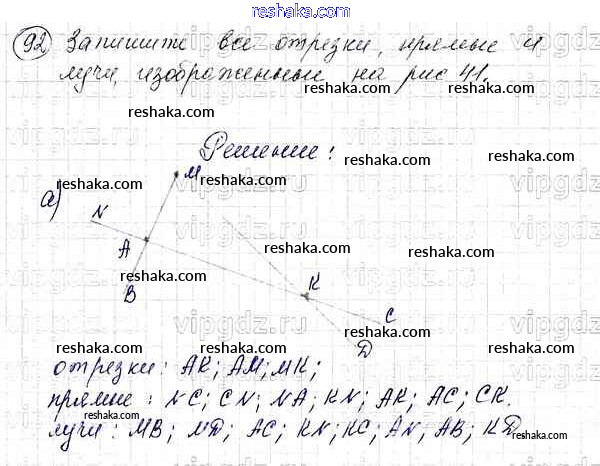 reshaka.com
92 Запишите все отрезки, прямые и
лучи, изображенные на рис 41.
reshaka.com
reshaka.com
Решение:
reshaka.com
reshaka.com
reshaka.com
M
reshaka.com
а)
N
A
reshaka.com
reshaka.com
B
K
C
reshaka.com
D
reshaka.com
reshaka.com
reshaka.com
отрезки: AK; AM; MK;
прямые: NC; CN; NA; KN; AK; AC; CK.
reshaka.com
reshaka.com
reshaka.com
лучи: MB; MD; AC; KN; KC; AN; AB; KD
vipgdz.ru